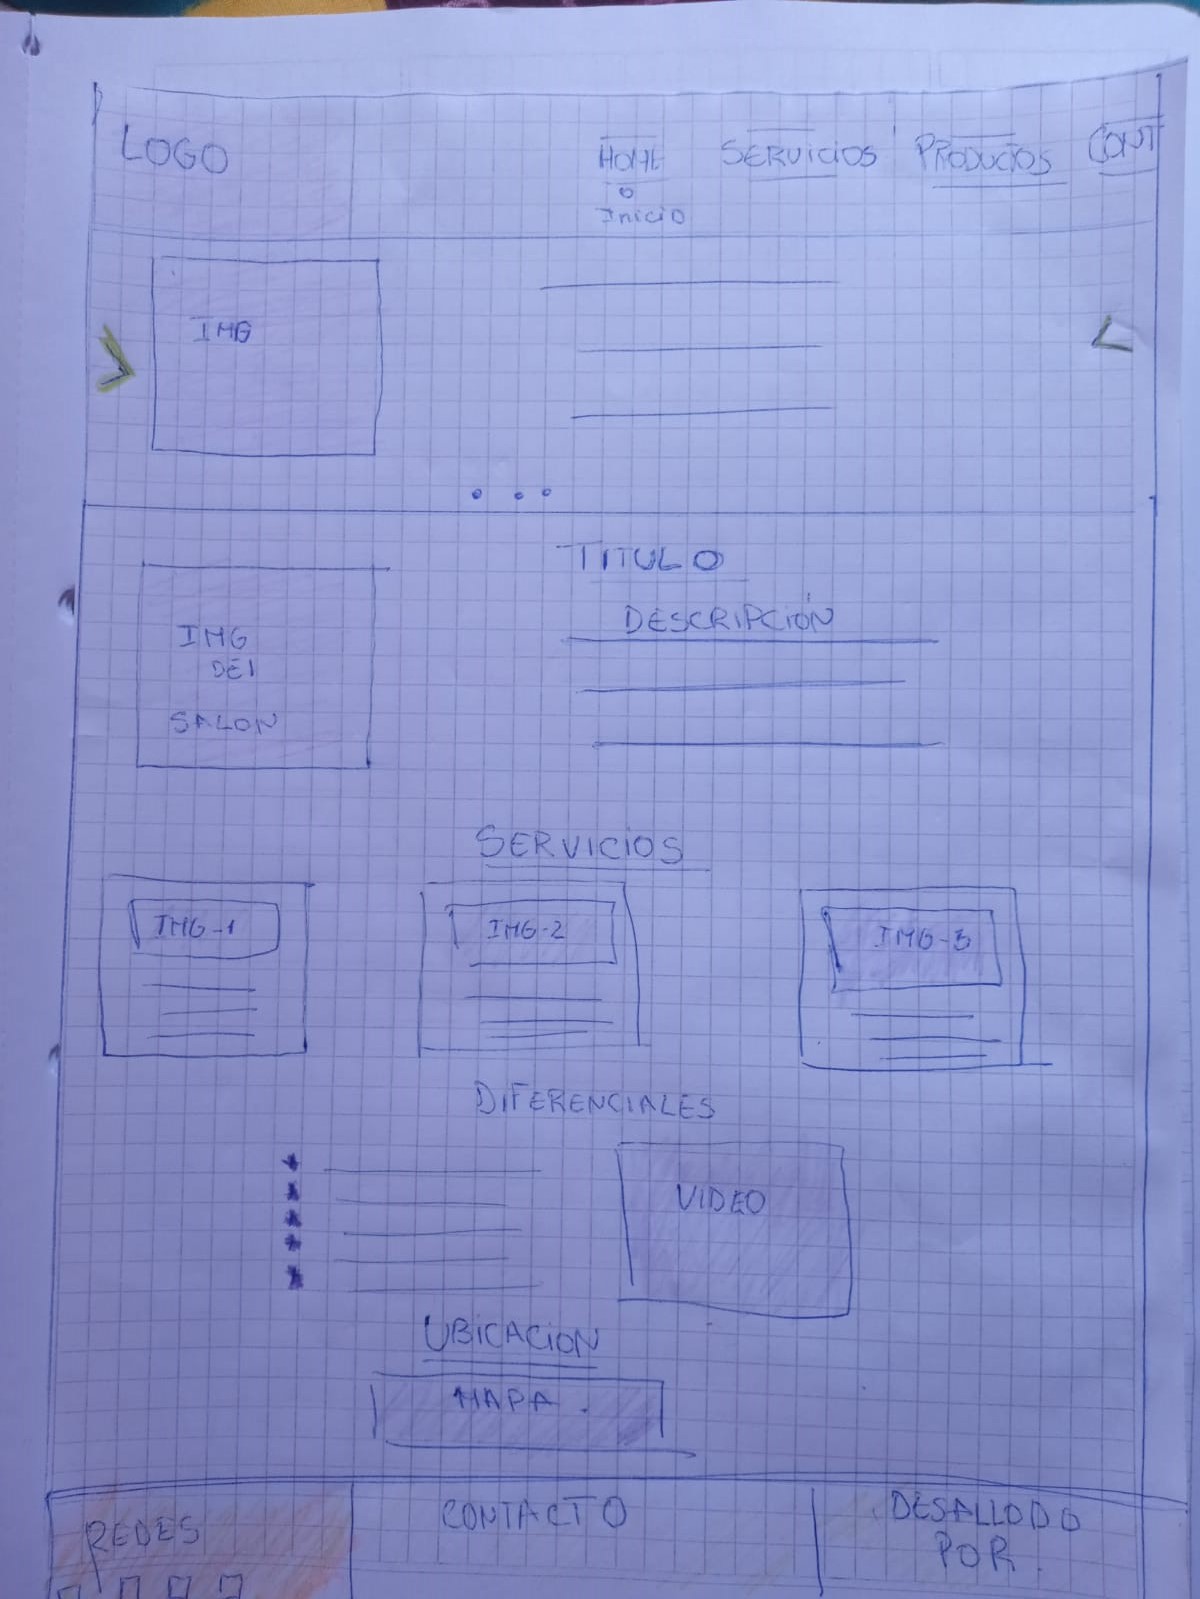 LOGO
HOME SERVICIOS PRODUCTOS CONT
o
Inicio
IMG
TITULO
DESCRIPCIÓN
IMG
DEl
SALON
SERVICIOS
IMG-1 IMG-2 IMG-3
DIFERENCIALES
VIDEO
UBICACION
MAPA.
REDES
CONTACTO
DESALLODO
POR.